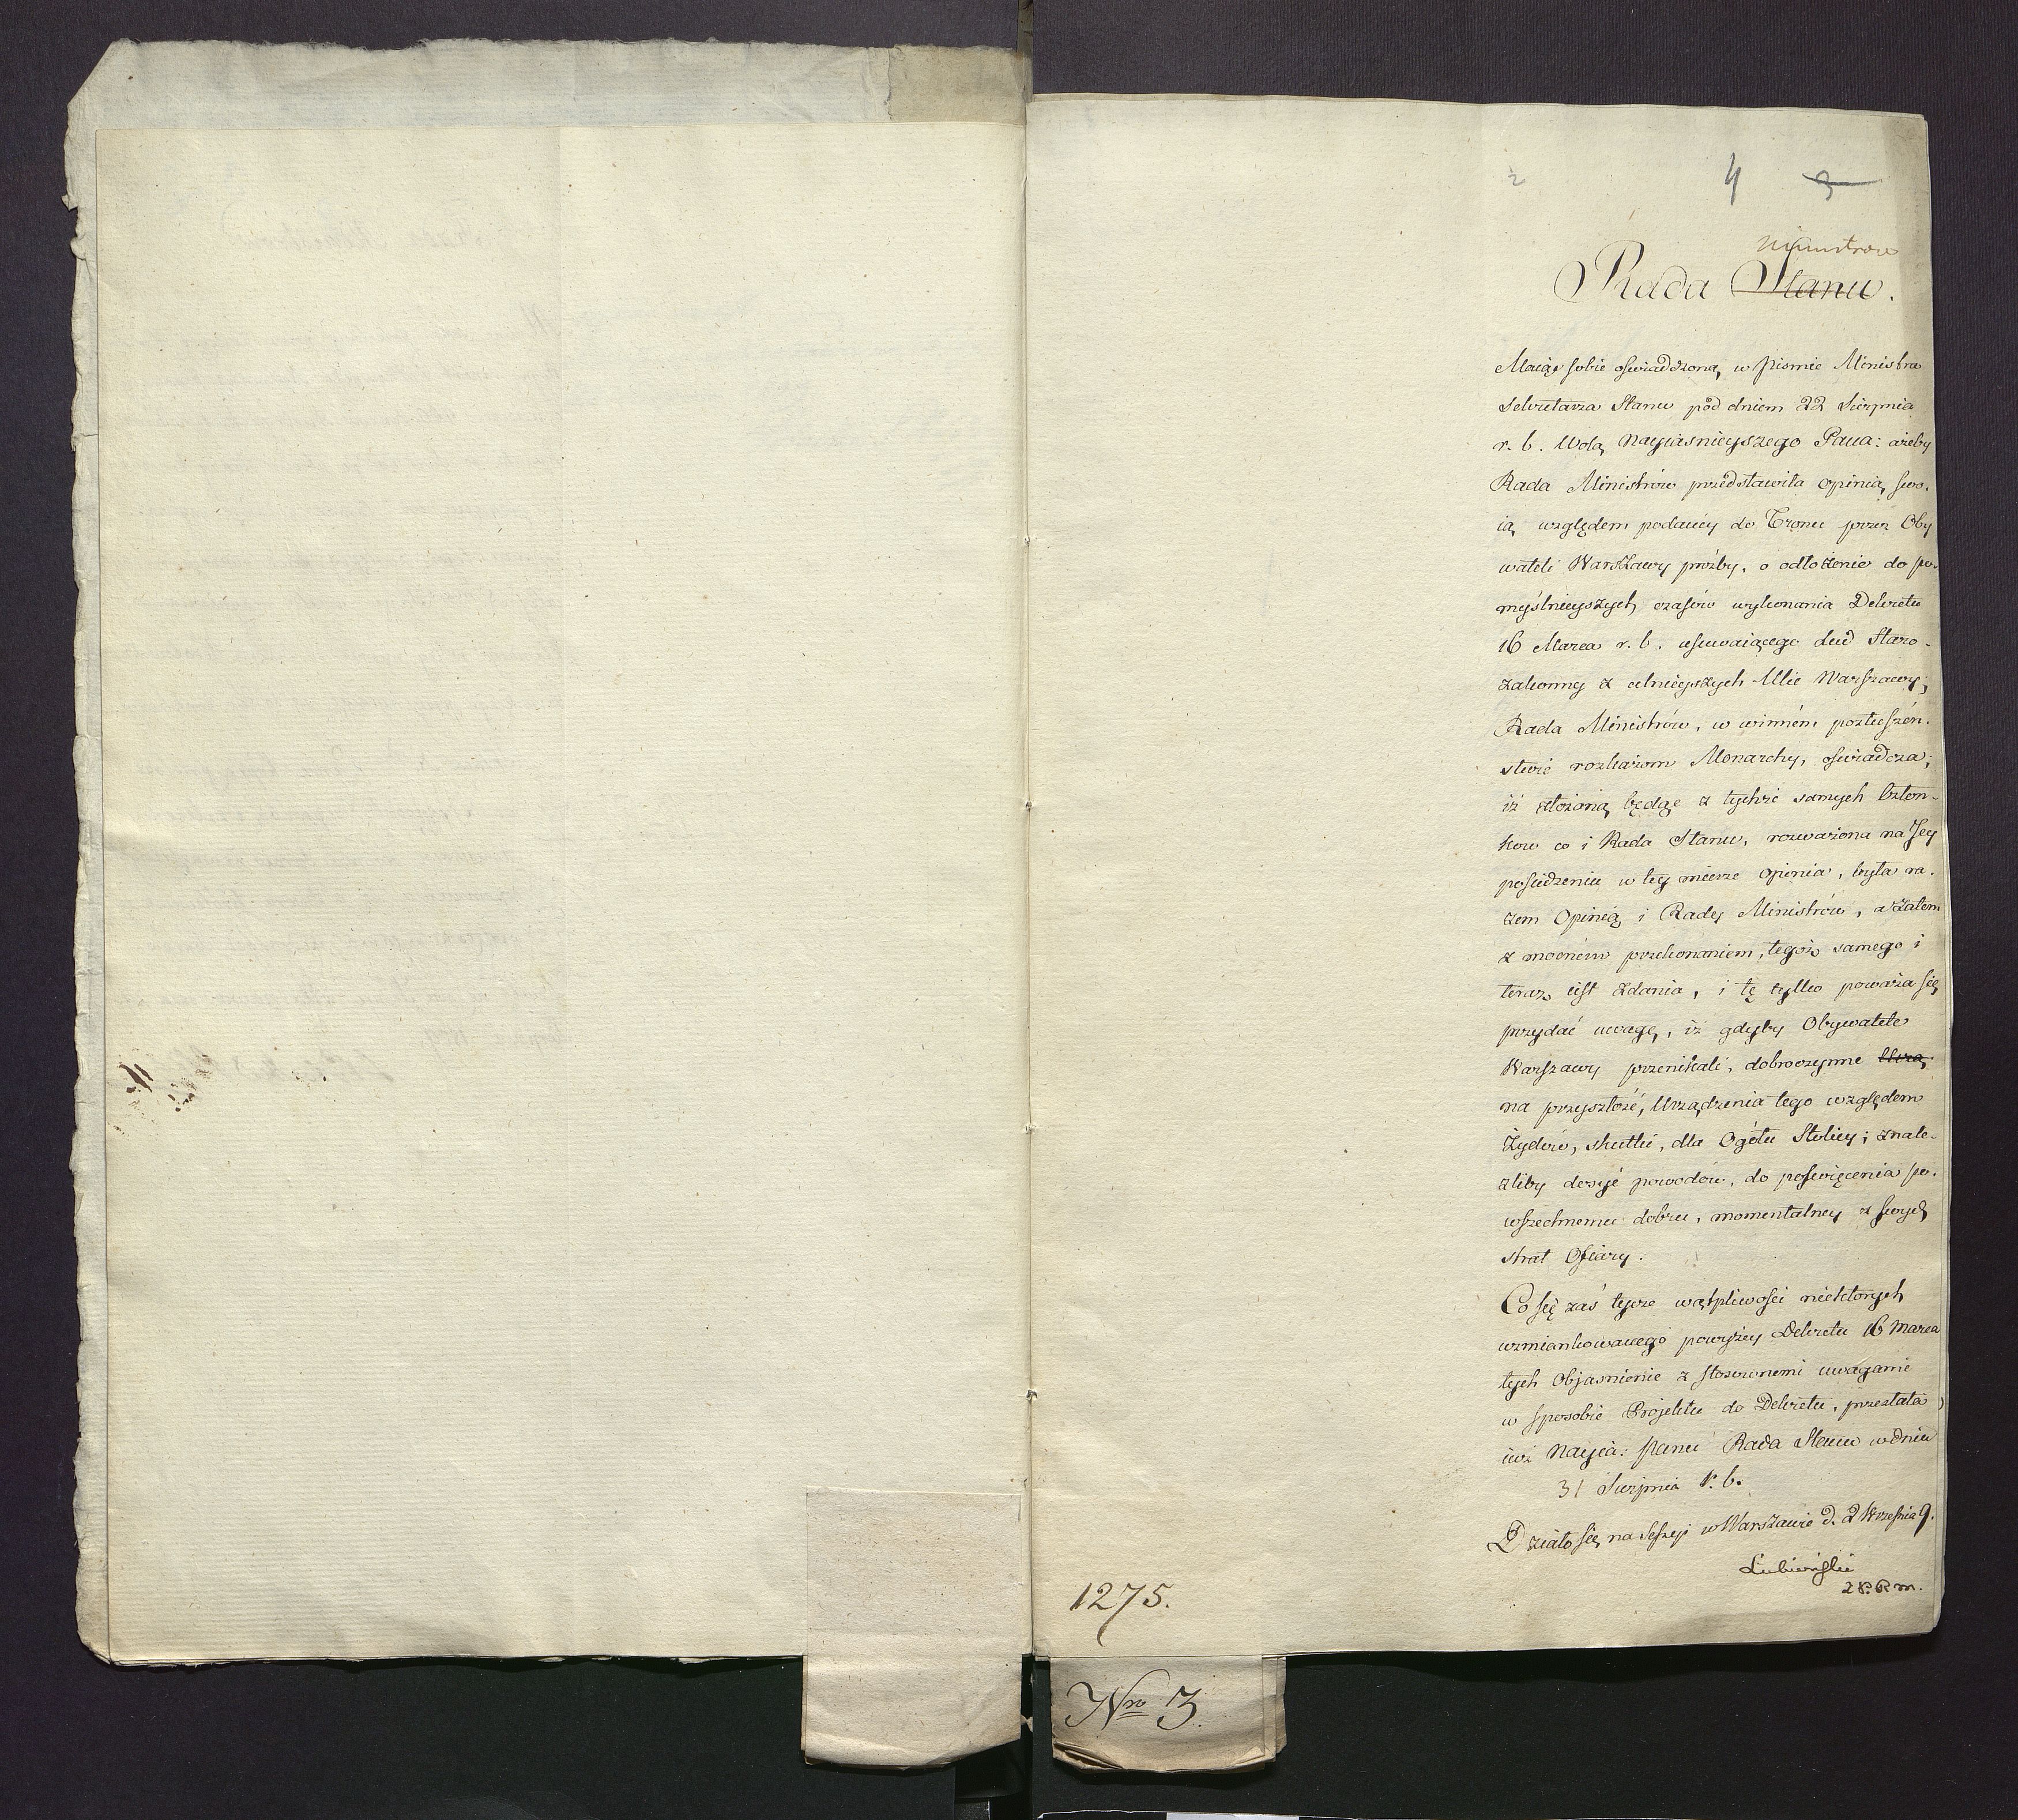 2 4 3
Ministrow
Rada Stanu.
Maiąc sobie oświadczoną, w piśmie Ministra
Sekretarza Stanu pod dniem 22 Sierpnia
r. b. Wolą Nayiaśnieyszego Pana: ażeby
Rada Ministrów przedstawiła opinią swo-
ią względem podaney do Tronu przez Oby
wateli Warszawy prośby, o odłożenie do po-
myślnieyszych czasów wykonania Dekretu
16 Marca r. b. usuwaiącego Lud Staro-
zakonny z celnieyszych Ulic Warszawy,
Rada Ministrów, w winném posłuszeń-
stwie rozkazom Monarchy, oświadcza,
iż złożoną będąc z tychże samych Człon-
kow co i Rada Stanu, rozważona na Jey
posiedzeniu w tey mierze opinia, była ra-
zem Opinią i Rady Ministrów, a zatem
z mocném przekonaniem, tegoż samego i
teraz iest zdania, i tę tylko poważa się
przydać uwagę, iż gdyby Obywatele
Warszawy przenikali, dobroczynne Urzą
na przyszłość, Urządzenia tego względem
Żydów, skutki, dla Ogółu Stolicy; znale-
zliby dosyć powodów, do poświęcenia po-
wszechnemu dobru, momentalney z swych
strat Ofiary.
Co się zaś tycze wątpliwości niektorych
wzmiankowanego powyżey Dekretu 16 Marca
tych Objaśnienie z stosownemi uwagami
w sposobie Projektu do Dekretu, przesłała
iuż Nayia: Panu Rada Stanu w dniu
31 Sierpnia r. b.
Działo się na Sessyi w Warszawie d. 2 Września 9.
Lubieński
1275.
Nro 3.